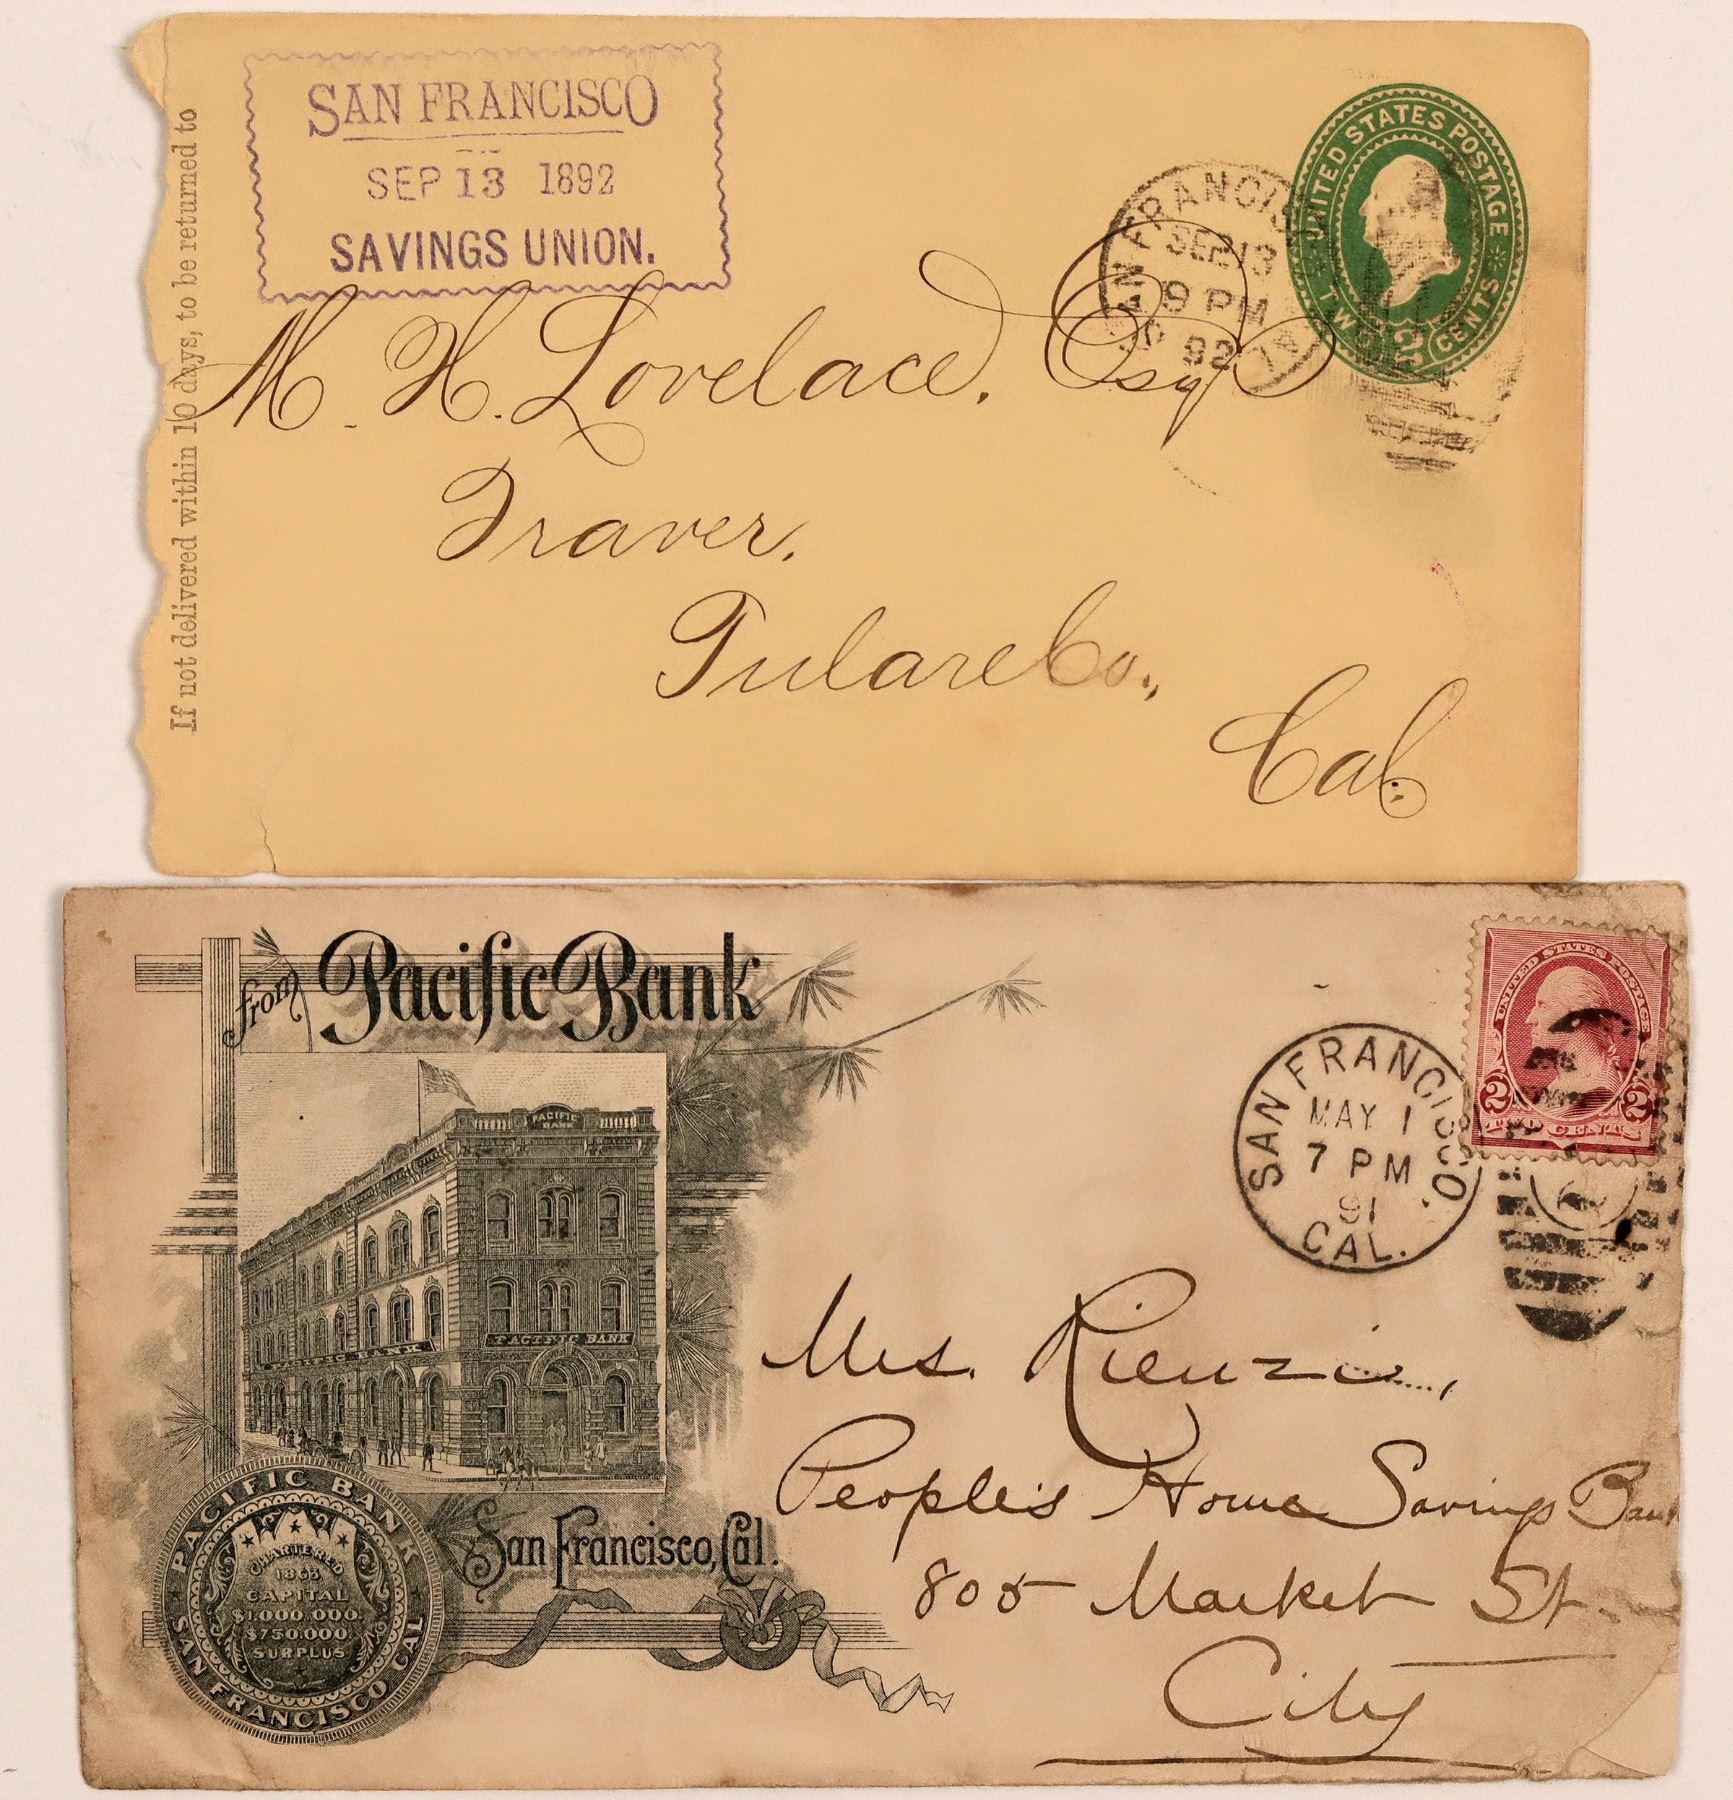 If not delivered within 10 days, to be returned to
SAN FRANCISCO
SEP 13 1892
SAVINGS UNION.
SAN FRANCISC
SEP 13
9 PM
92
CAL
UNITED STATES POSTAGE
TWO 2 CENTS
M. H. Lovelace, Esq
Traver,
Tulare Co.,
Cal.
from Pacific Bank
PACIFIC
BANK
PACIFIC BANK
PACIFIC BANK
San Francisco, Cal.
PACIFIC BANK
SAN FRANCISCO CAL
CHARTERED
1863
CAPITAL
$1.000.000.
$750.000.
SURPLUS
SAN FRANCISCO,
MAY 1
7 PM
91
CAL.
UNITED STATES POSTAGE
2 2
TWO CENTS
Mrs. Rienzi,
People's Home Savings Bank
805 Market St.
City